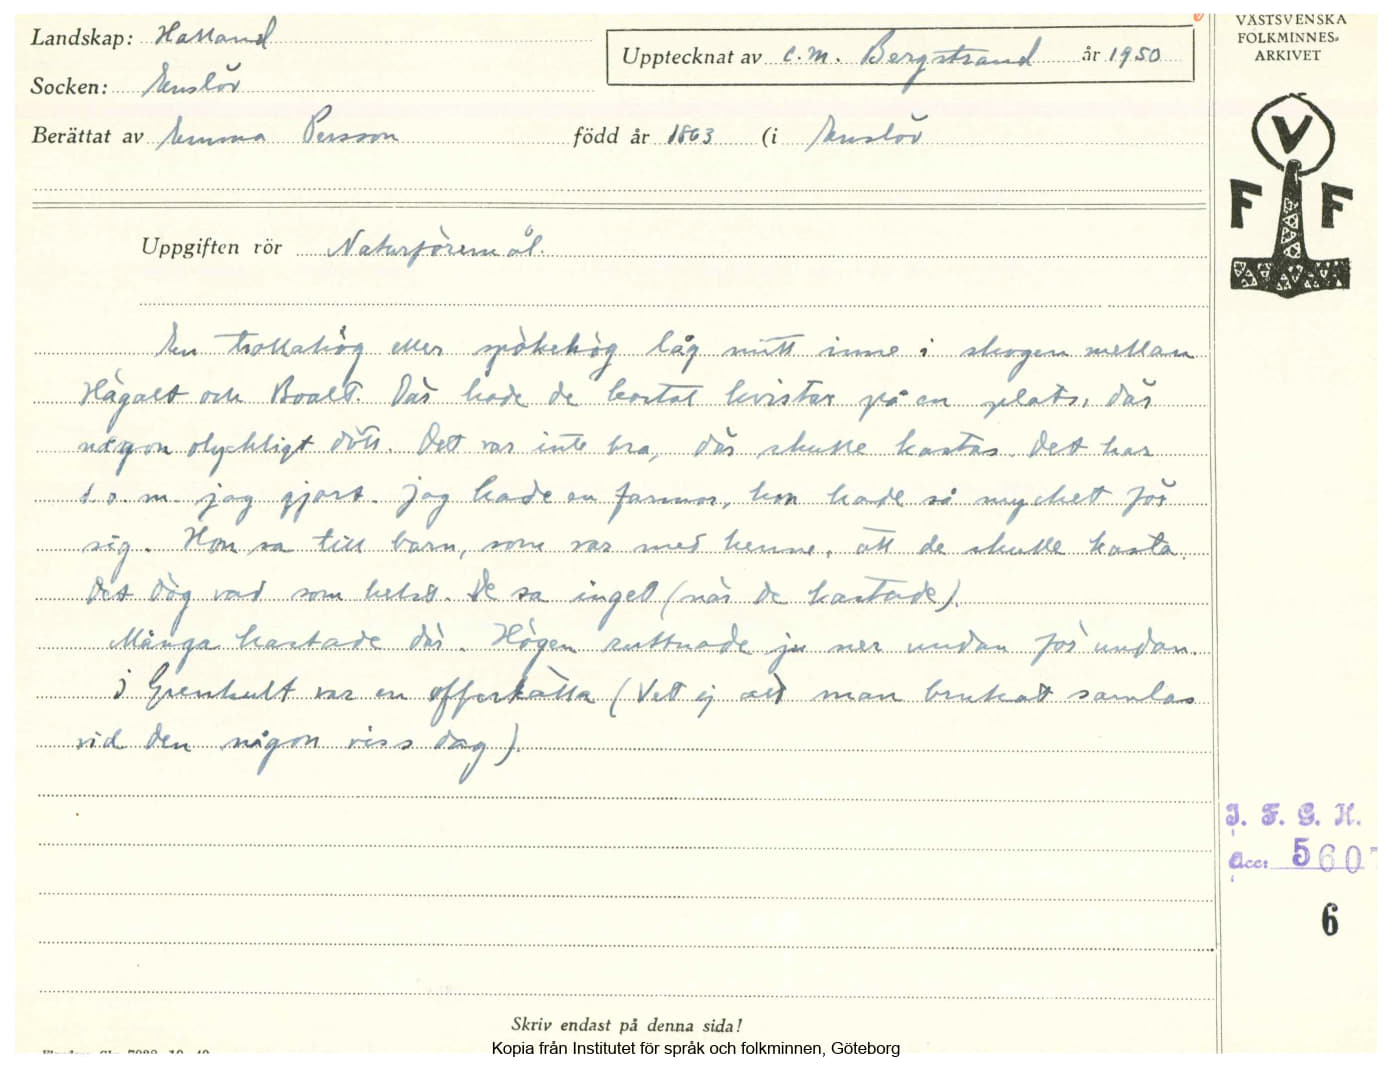 Landskap: Halland
Upptecknat av C. M. Bergstrand år 1950
Socken: Enslöv
Berättat av Emma Persson född år 1863 (i Enslöv
VÄSTSVENSKA
FOLKMINNES-
ARKIVET
V
F F
Uppgiften rör Naturföremål.
En trollahög eller spökehög låg mitt inne i skogen mellan
Hägalt och Boalt. Där hade de kastat kvistar på en plats, där
någon olyckligt dött. Det var inte bra, där skulle kastas. Det har
t. o. m. jag gjort. Jag hade en farmor, hon hade så mycket för
sig. Hon sa till barn, som var med henne, att de skulle kasta.
Det dög vad som helst. De sa inget (när de kastade).
Många kastade där. Högen ruttnade ju ner undan för undan.
I Grenhult var en offerkälla (Vet ej att man brukat samlas
vid den någon viss dag).
I. F. G. H.
Acc: 5607
6
Skriv endast på denna sida!
Kopia från Institutet för språk och folkminnen, Göteborg